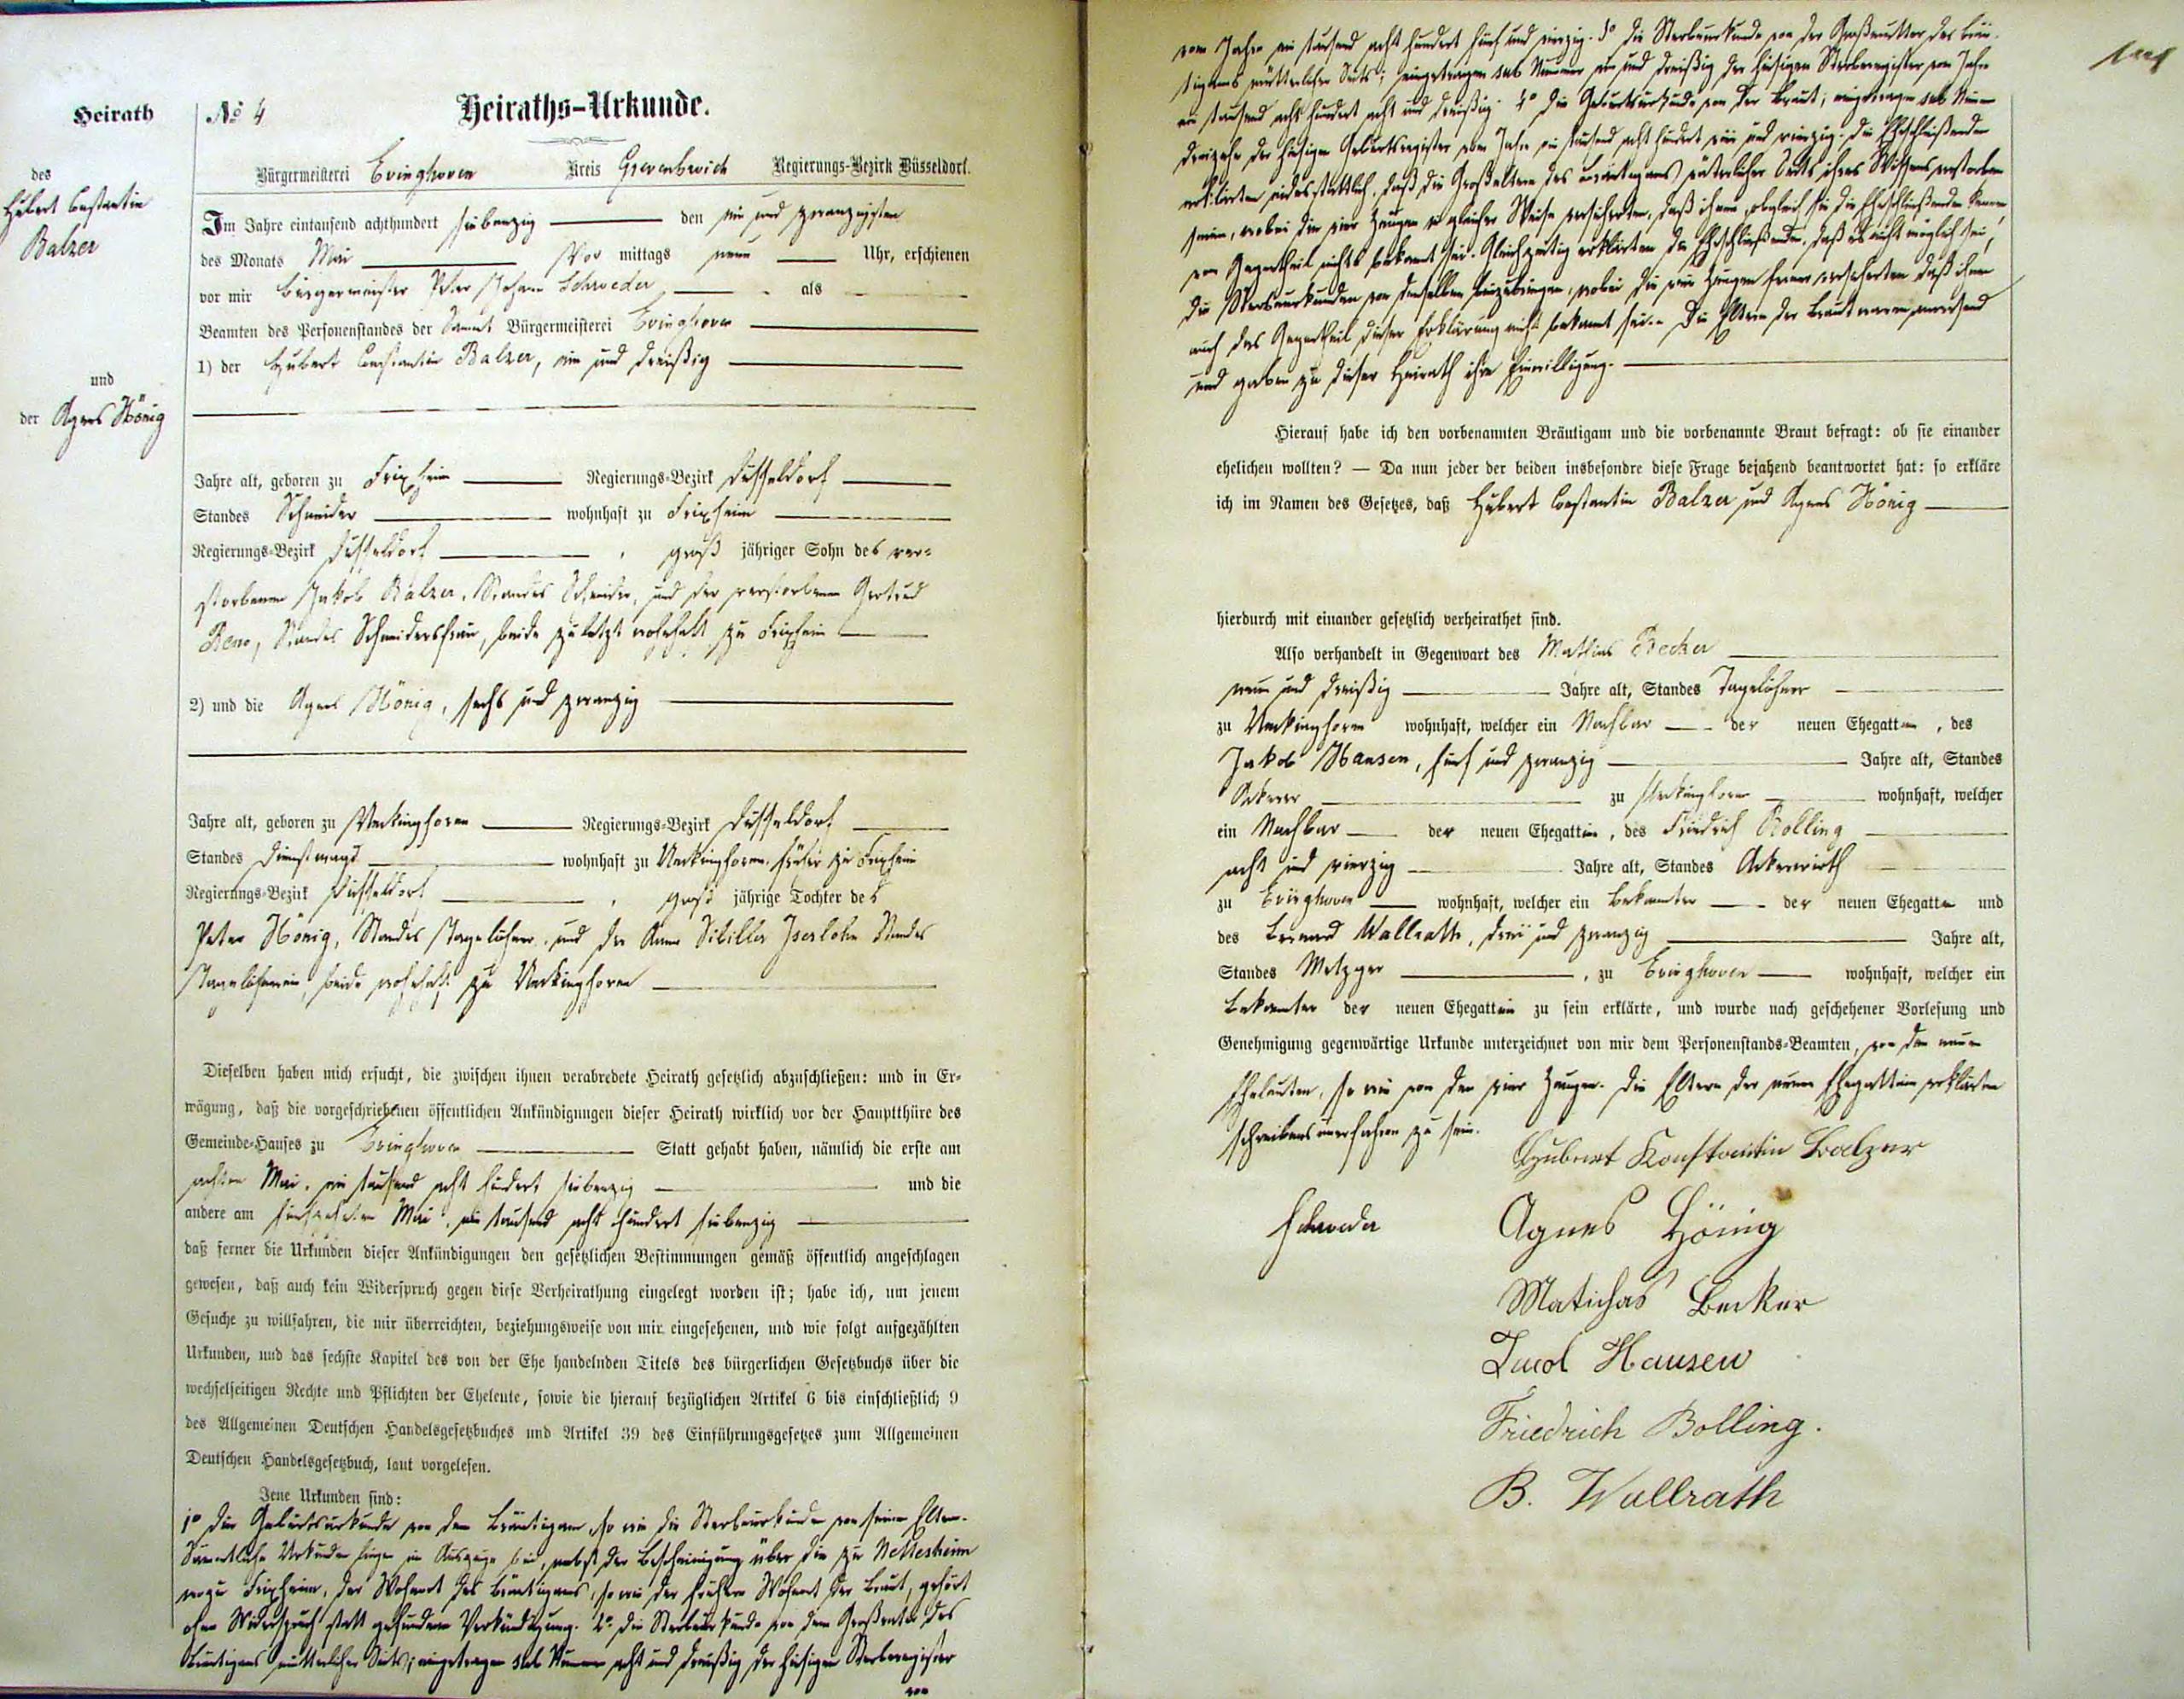 Heirath
des
Hubert Constantin
Balzer
und
der Agnes Hönig
No 4
Heiraths-Urkunde.
Bürgermeisterei Evinghoven Kreis Grevenbroich Regierungs-Bezirk Düsseldorf.
Im Jahre eintausend achthundert siebenzig den ein und zwanzigsten
des Monats Mai Vor mittags neun Uhr, erschienen
vor mir Bürgermeister Peter Johann Schroeder als
Beamten des Personenstandes der Sammt Bürgermeisterei Evinghoven
1) der Hubert Constantin Balzer, ein und dreißig
Jahre alt, geboren zu Frixheim Regierungs-Bezirk Düsseldorf
Standes Schneider wohnhaft zu Frixheim
Regierungs-Bezirk Düsseldorf, groß jähriger Sohn des ver-
storbenen Jakob Balzer, Standes Schneider, und der verstorbenen Gertrud
Standes Schneidersfrau, beide zuletzt wohnhaft zu Frixheim
2) und die Agnes Hönig, sechs und zwanzig
Jahre alt, geboren zu Ueckinghoven Regierungs-Bezirk Düsseldorf
Standes Dienstmagd wohnhaft zu Ueckinghoven, früher zu Frixheim
Regierungs-Bezirk Düsseldorf, groß jährige Tochter des
Peter Hönig, Standes Tagelöhner, und der Anna Sibilla Iserlohn Standes
Tagelöhnerin, beide wohnhaft zu Ueckinghoven
Dieselben haben mich ersucht, die zwischen ihnen verabredete Heirath gesetzlich abzuschließen: und in Er-
wägung, daß die vorgeschriebenen öffentlichen Ankündigungen dieser Heirath wirklich vor der Hauptthüre des
Gemeinde-Hauses zu Evinghoven Statt gehabt haben, nämlich die erste am
achten Mai, ein tausend acht hundert siebenzig und die
andere am fünfzehnten Mai, ein tausend acht hundert siebenzig
daß ferner die Urkunden dieser Ankündigungen den gesetzlichen Bestimmungen gemäß öffentlich angeschlagen
gewesen, daß auch kein Widerspruch gegen diese Verheirathung eingelegt worden ist; habe ich, um jenem
Gesuche zu willfahren, die mir überreichten, beziehungsweise von mir eingesehenen, und wie folgt aufgezählten
Urkunden, und das sechste Kapitel des von der Ehe handelnden Titels des bürgerlichen Gesetzbuchs über die
wechselseitigen Rechte und Pflichten der Eheleute, sowie die hierauf bezüglichen Artikel 6 bis einschließlich 9
des Allgemeinen Deutschen Handelsgesetzbuches und Artikel 39 des Einführungsgesetzes zum Allgemeinen
Deutschen Handelsgesetzbuch, laut vorgelesen.
Jene Urkunden sind:
1o Die Geburtsurkunde von dem Bräutigam, so wie die Sterbeurkunden von seinen Eltern.
Sämmtliche Urkunden liegen im Auszuge bei, nebst der Bescheinigung über die zu Nettesheim
wozu Frixheim, der Wohnort des Bräutigams, so wie der frühere Wohnort der Braut, gehört
ohne Widerspruch statt gefundene Verkündigung. 2o Die Sterbeurkunde von dem Großvater des
Bräutigams mütterlicher Seits; eingetragen sub Nummer acht und dreißig der hiesigen Sterberegister
vom
vom Jahre ein tausend acht hundert fünf und vierzig. 3o Die Sterbeurkunde von der Großmutter des Bräu-
tigams mütterlicher Seits; eingetragen sub Nummer ein und dreißig der hiesigen Sterberegister vom Jahre
ein tausend acht hundert acht und dreißig. 4o Die Geburtsurkunde von der Braut; eingetragen sub Num
dreizehn der hiesigen Geburtsregister vom Jahre ein tausend acht hundert vier und vierzig. Die Eheschließenden
erklärten eidesstattlich, daß die Großeltern des Bräutigams väterlicher Seits ihres Wissens verstorben
seien, wobei die vier Zeugen in gleicher Weise versicherten, daß ihnen, obgleich sie die Eheschließenden kennen,
vom Gegentheil nichts bekannt sei. Gleichzeitig erklärten die Eheschließenden, daß es nicht möglich sei,
die Sterbeurkunden von denselben beizubringen, wobei die vier Zeugen ferner versicherten daß ihnen
auch das Gegentheil dieser Erklärung nicht bekannt sei. Die Eltern der Braut waren anwesend
und gaben zu dieser Heirath ihre Einwilligung.
Hierauf habe ich den vorbenannten Bräutigam und die vorbenannte Braut befragt: ob sie einander
ehelichen wollten? — Da nun jeder der beiden insbesondre diese Frage bejahend beantwortet hat: so erkläre
ich im Namen des Gesetzes, daß Hubert Constantin Balzer und Agnes Hönig
hierdurch mit einander gesetzlich verheirathet sind.
Also verhandelt in Gegenwart des Mathias Becker
neun und dreißig Jahre alt, Standes Tagelöhner
zu Ueckinghoven wohnhaft, welcher ein Nachbar der neuen Ehegatten, des
Jakob Hansen, fünf und zwanzig Jahre alt, Standes
Ackerer zu Ueckinghoven wohnhaft, welcher
ein Nachbar der neuen Ehegatten, des Friedrich Bolling
acht und vierzig Jahre alt, Standes Ackerwirth
zu Evinghoven wohnhaft, welcher ein Bekannter der neuen Ehegatten und
des Bernard Wallrath, drei und zwanzig Jahre alt,
Standes Metzger, zu Evinghoven wohnhaft, welcher ein
Bekannter der neuen Ehegatten zu sein erklärte, und wurde nach geschehener Vorlesung und
Genehmigung gegenwärtige Urkunde unterzeichnet von mir dem Personenstands-Beamten, von den neuen
Eheleuten, so wie von den vier Zeugen. Die Eltern der neuen Ehegattin erklärten
schreibens unerfahren zu sein.
Hubert Konstantin Balzer
Schroeder
Agnes Hönig
Mathias Becker
Jacob Hansen
Friedrich Bolling.
B. Wallrath